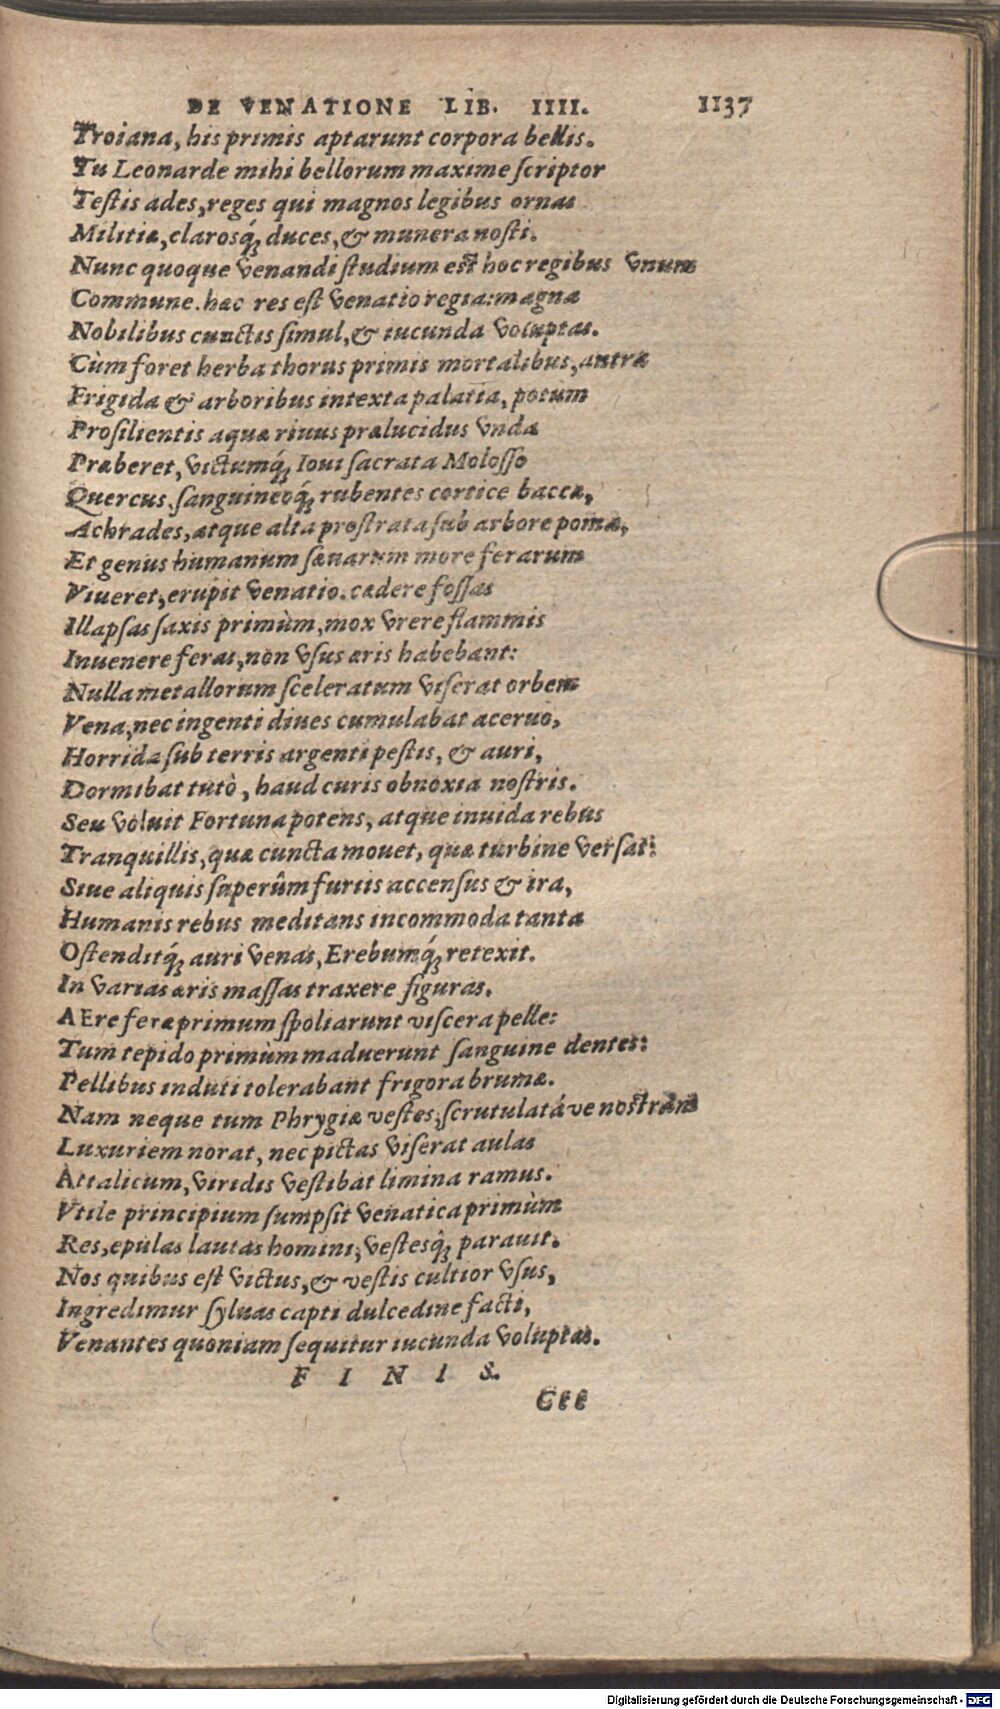 DE VENATIONE LIB. IIII. 1137
Troiana, his primis aptarunt corpora bellis.
Tu Leonarde mihi bellorum maxime ſcriptor
Teſtis ades, reges qui magnos legibus ornas
Militiæ, claroſq́; duces, & munera noſti.
Nunc quoque venandi ſtudium eſt hoc regibus vnum
Commune. hæc res eſt venatio regia: magna
Nobilibus cunctis ſimul, & iucunda voluptas.
Cùm foret herba thorus primis mortalibus, antra
Frigida & arboribus intexta palatia, potum
Proſilientis aquæ riuus prælucidus vnda
Præberet, victumq́; Ioui ſacrata Moloſſo
Quercus, ſanguineoq́; rubentes cortice baccæ,
Achrades, atque alta proſtrata ſub arbore poma,
Et genus humanum ſæuarum more ferarum
Viueret, erupit venatio. cædere foſſas
Illapſas ſaxis primùm, mox vrere flammis
Inuenere feras, non vſus æris habebant:
Nulla metallorum ſceleratum viſerat orbem
Vena, nec ingenti diues cumulabat aceruo,
Horrida ſub terris argenti peſtis, & auri,
Dormibat tutò, haud curis obnoxia noſtris.
Seu voluit Fortuna potens, atque inuida rebus
Tranquillis, quæ cuncta mouet, quæ turbine verſat:
Siue aliquis ſuperûm furiis accenſus & ira,
Humanis rebus meditans incommoda tanta
Oſtenditq́; auri venas, Erebumq́; retexit.
In varias æris maſſas traxere figuras.
AEre feræ primum ſpoliarunt viſcera pelle:
Tum tepido primùm maduerunt ſanguine dentes:
Pellibus induti tolerabant frigora brumæ.
Nam neque tum Phrygiæ veſtes, ſcrutulatáve noſtram
Luxuriem norat, nec pictas viſerat aulas
Attalicum, viridis veſtibat limina ramus.
Vtile principium ſumpſit venatica primùm
Res, epulas lautas homini, veſteſq́; parauit.
Nos quibus eſt victus, & veſtis cultior vſus,
Ingredimur ſyluas capti dulcedine facti,
Venantes quoniam ſequitur iucunda voluptas.
F I N I S.
Ccc
Digitalisierung gefördert durch die Deutsche Forschungsgemeinschaft - DFG